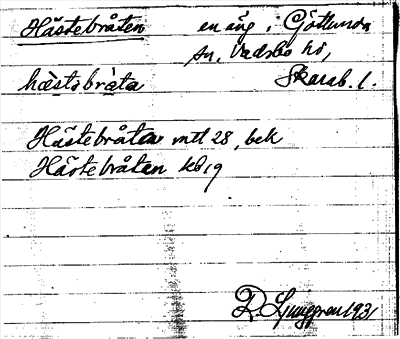 Hästebråten en äng i Götlunda
sn, Vadsbo hd,
hæ̀stsbrɑ̀ta Skarab. l.
Hästebråten mtl 28, bek
Hästebråten kb 19
R. Ljunggren 1931